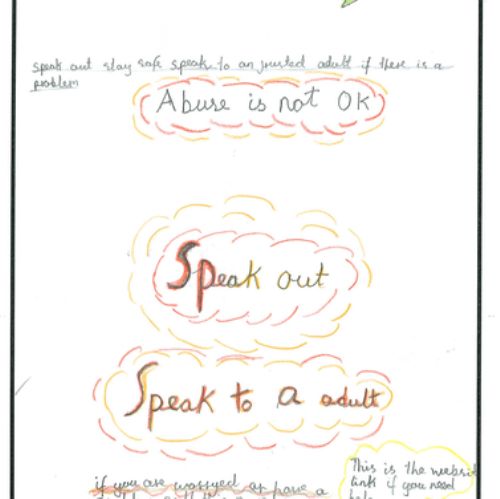 speak out stay safe speak to an trusted adult if there is a
problem
Abuse is not OK
Speak out
Speak to a adult
if you are worryed or have a
This is the website
link if you need
help